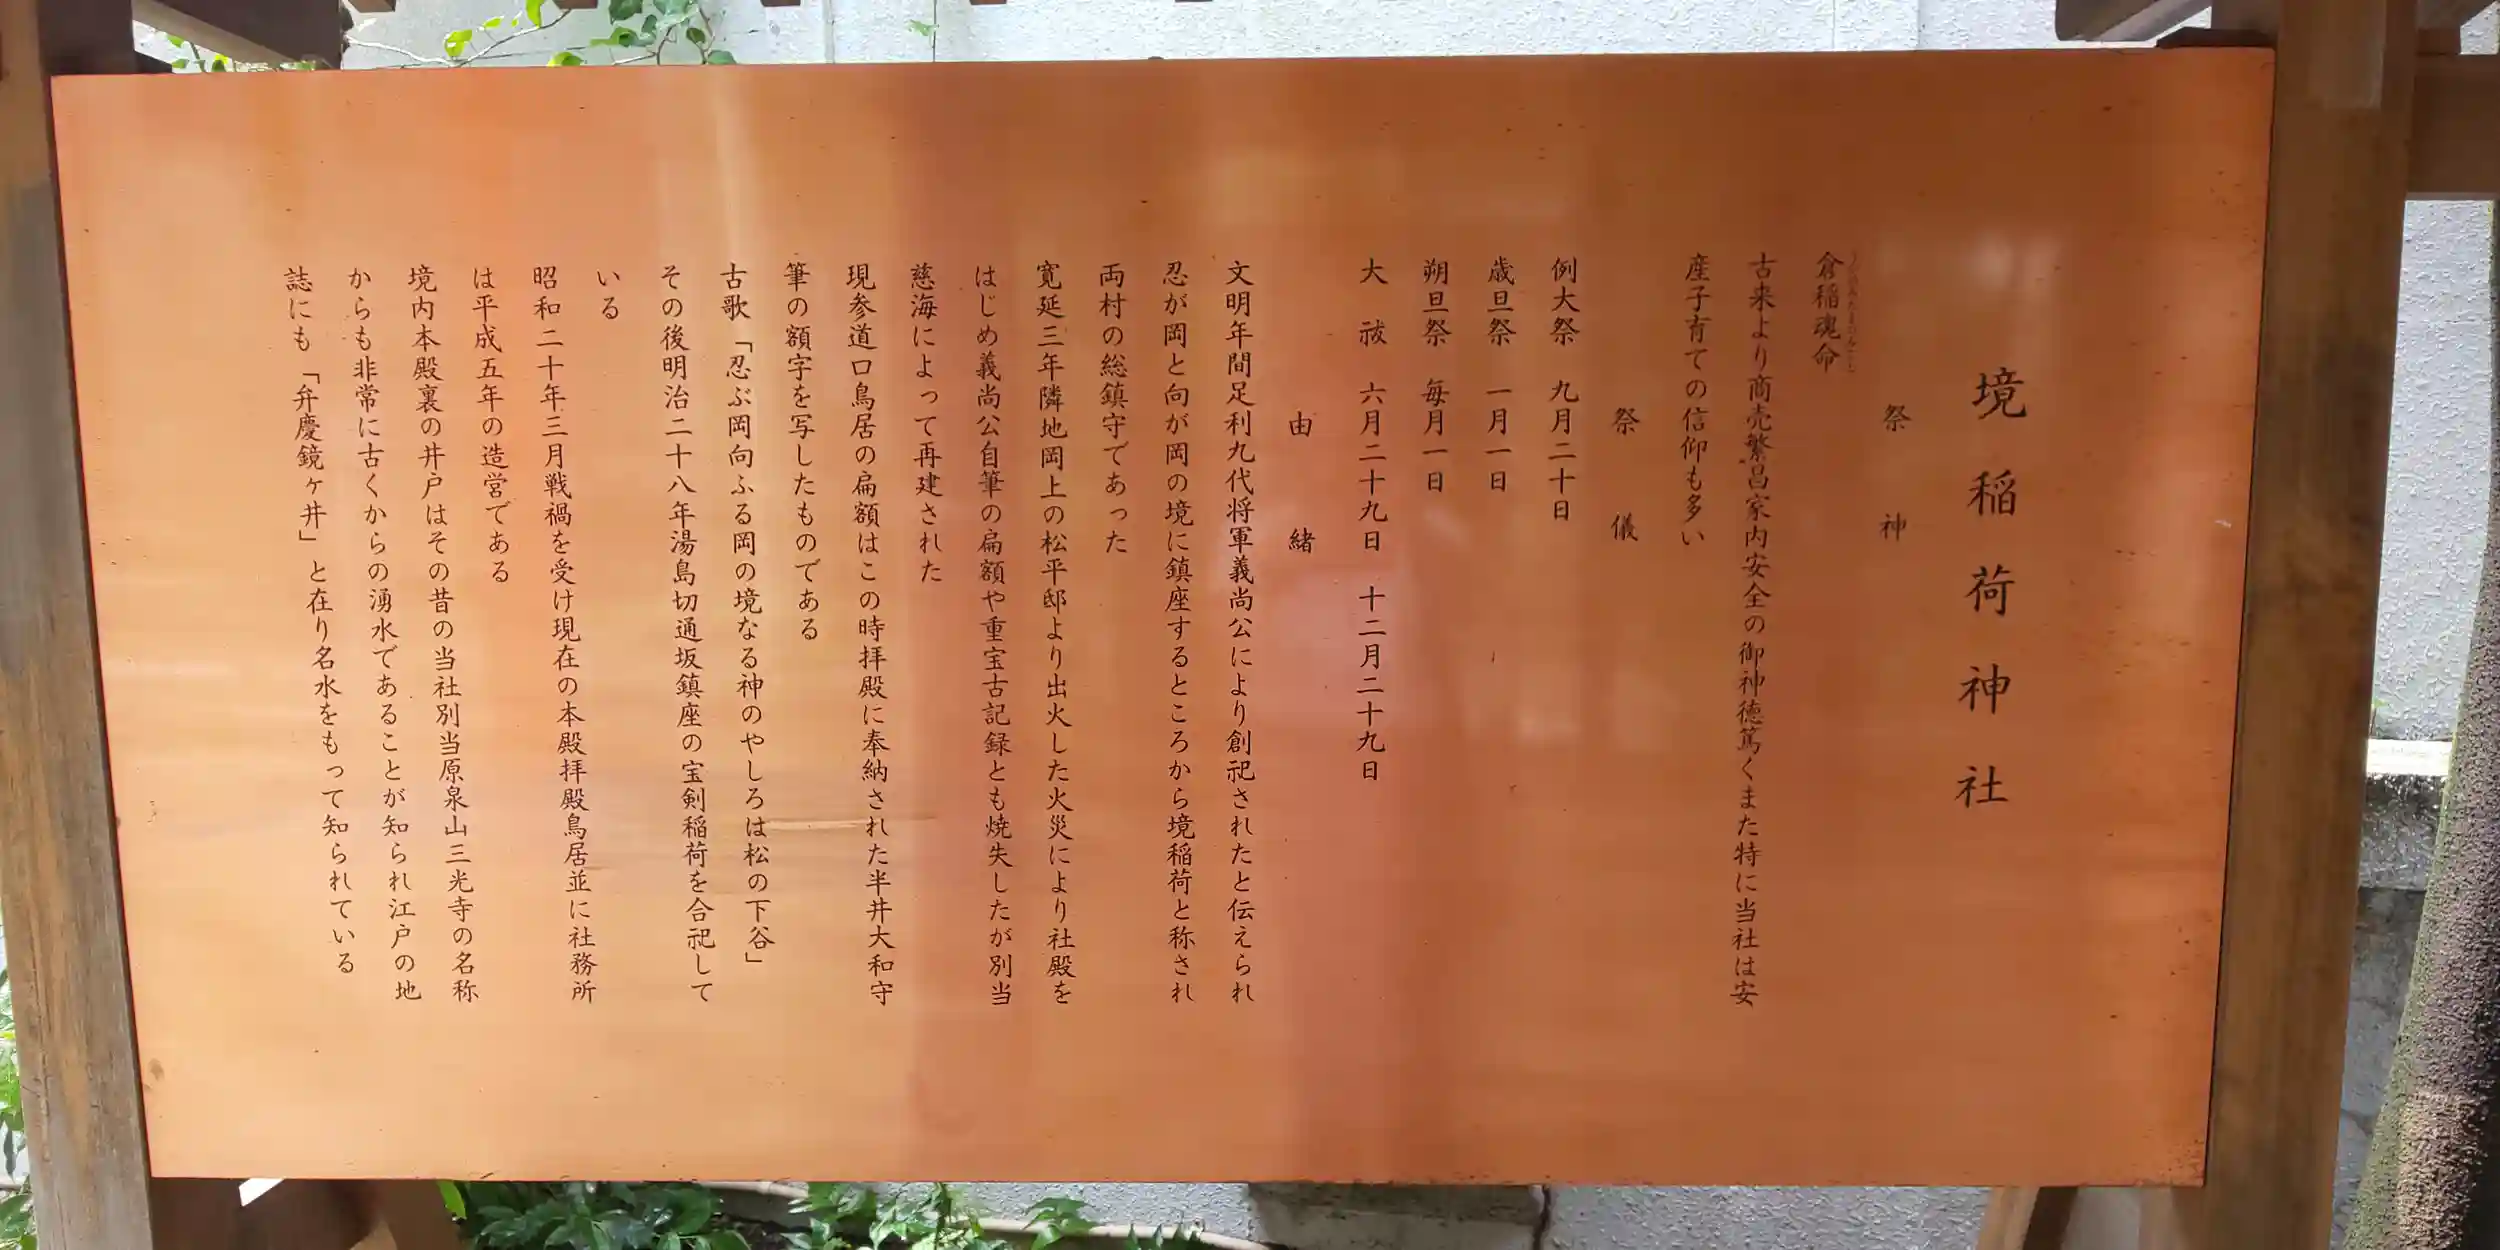 境稲荷神社
祭神
倉稲魂命
古来より商売繁昌家内安全の御神徳篤くまた特に当社は安
産子育ての信仰も多い
祭儀
例大祭　九月二十日
歳旦祭　一月一日
朔旦祭　毎月一日
大　祓　六月二十九日　十二月二十九日
由緒
文明年間足利九代将軍義尚公により創祀されたと伝えられ
忍が岡と向が岡の境に鎮座するところから境稲荷と称され
両村の総鎮守であった
寛延三年隣地岡上の松平邸より出火した火災により社殿を
はじめ義尚公自筆の扁額や重宝古記録とも焼失したが別当
慈海によって再建された
現参道口鳥居の扁額はこの時拝殿に奉納された半井大和守
筆の額字を写したものである
古歌「忍ぶ岡向ふる岡の境なる神のやしろは松の下谷」
その後明治二十八年湯島切通坂鎮座の宝剣稲荷を合祀して
いる
昭和二十年三月戦禍を受け現在の本殿拝殿鳥居並に社務所
は平成五年の造営である
境内本殿裏の井戸はその昔の当社別当原泉山三光寺の名称
からも非常に古くからの湧水であることが知られ江戸の地
誌にも「弁慶鏡ヶ井」と在り名水をもって知られている